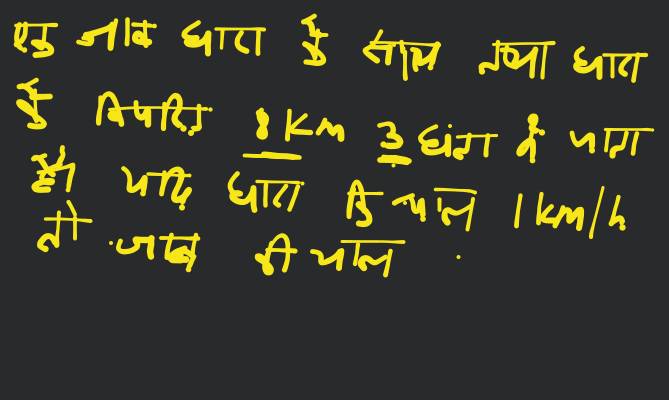 एक नाव धारा के साथ तथा धारा
के विपरित 8 Km 3 घंटा में जाता
है। यदि धारा कि चाल 1 km/h
तो नाव की चाल